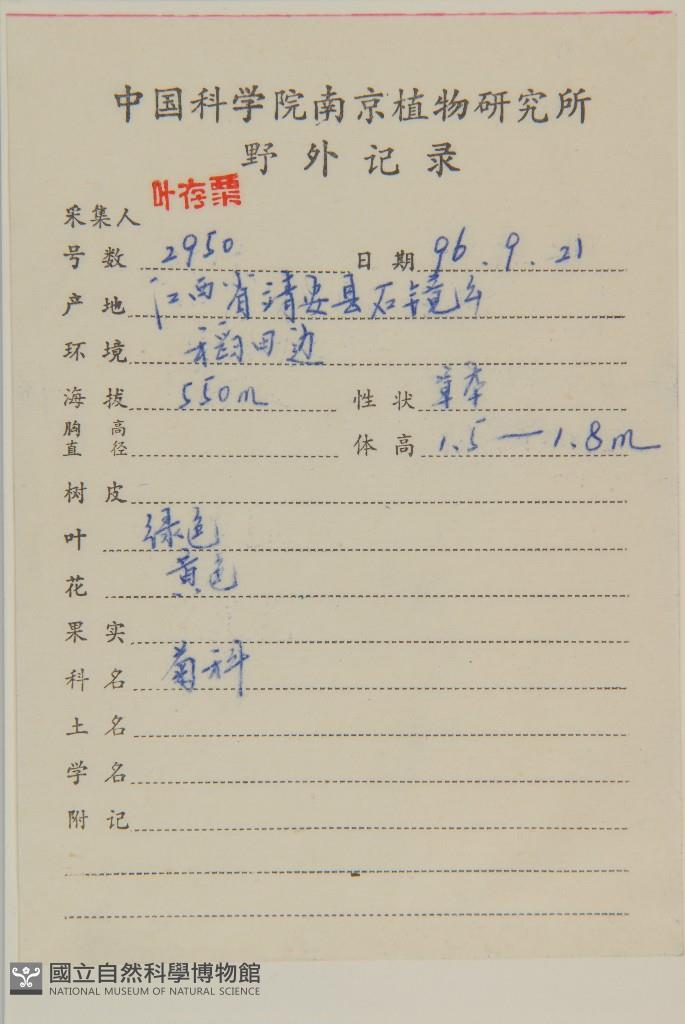 中国科学院南京植物研究所
野外记录
采集人 叶存粟
号数 2950 日期 96.9.21
产地 江西省靖安县石镜乡
环境 稻田边
海拔 550m 性状 草本
胸高直径 体高 1.5—1.8m
树皮
叶 绿色
花 黄色
果实
科名 菊科
土名
学名
附记
國立自然科學博物館
NATIONAL MUSEUM OF NATURAL SCIENCE